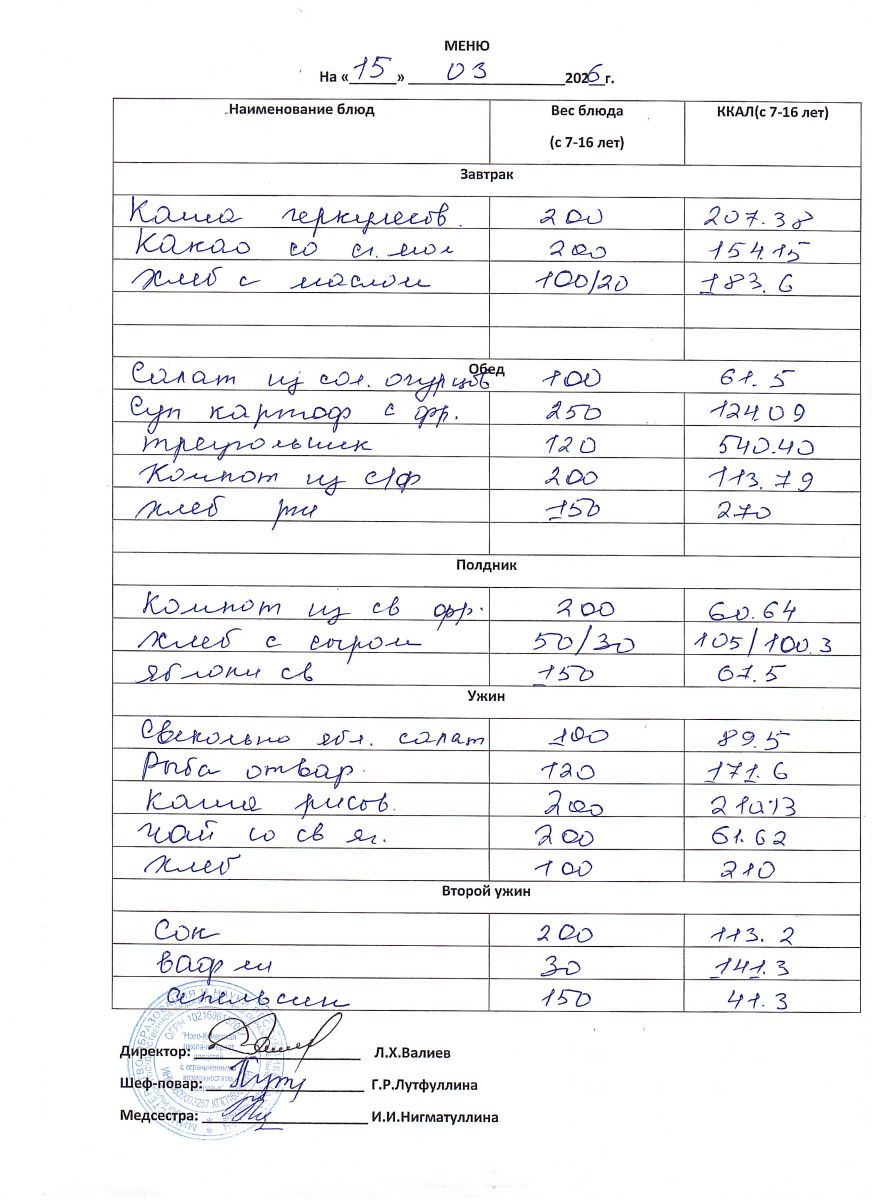 МЕНЮ
На «15» 03 2026 г.
Наименование блюд Вес блюда (с 7-16 лет) ККАЛ(с 7-16 лет)
Завтрак
Каша геркулесов. 200 207.38
Какао со сг. мол 200 154.15
Хлеб с маслом 100/20 183.6
Обед
Салат из сол. огурцов 100 61.5
Суп картоф с фр. 250 124.09
треугольник 120 540.40
Компот из с/ф 200 113.79
хлеб рж 150 270
Полдник
Компот из св фр. 200 60.64
хлеб с сыром 50/30 105/100.3
яблоки св 150 67.5
Ужин
Свекольно ябл. салат 100 89.5
Рыба отвар. 120 171.6
Каша рисов. 200 210.13
чай со св яг. 200 61.62
хлеб 100 210
Второй ужин
Сок 200 113.2
вафли 30 141.3
апельсин 150 41.3
Директор: Л.Х.Валиев
Шеф-повар: Г.Р.Лутфуллина
Медсестра: И.И.Нигматуллина